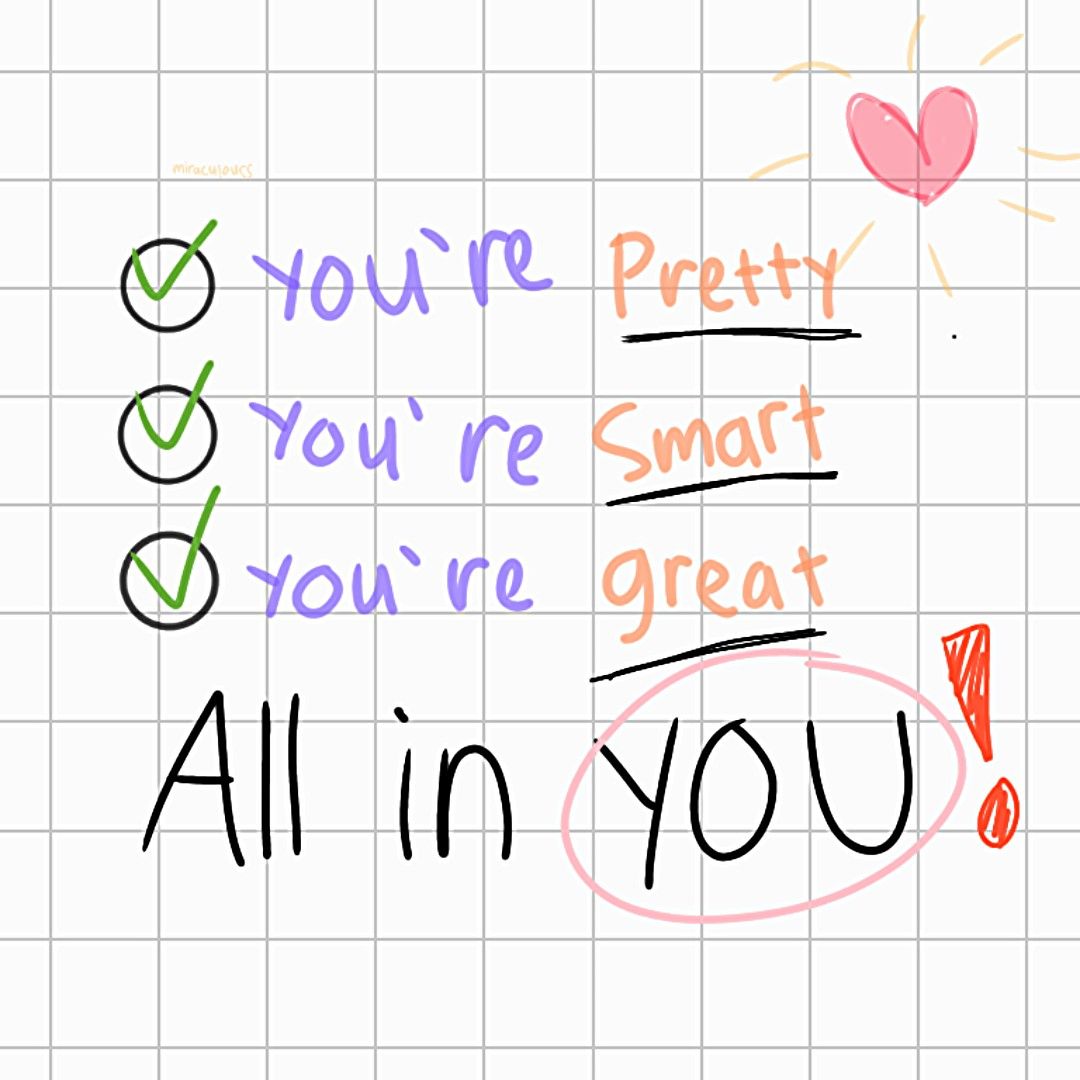 miraculoucs
You're Pretty
You're Smart
You're great
All in YOU!